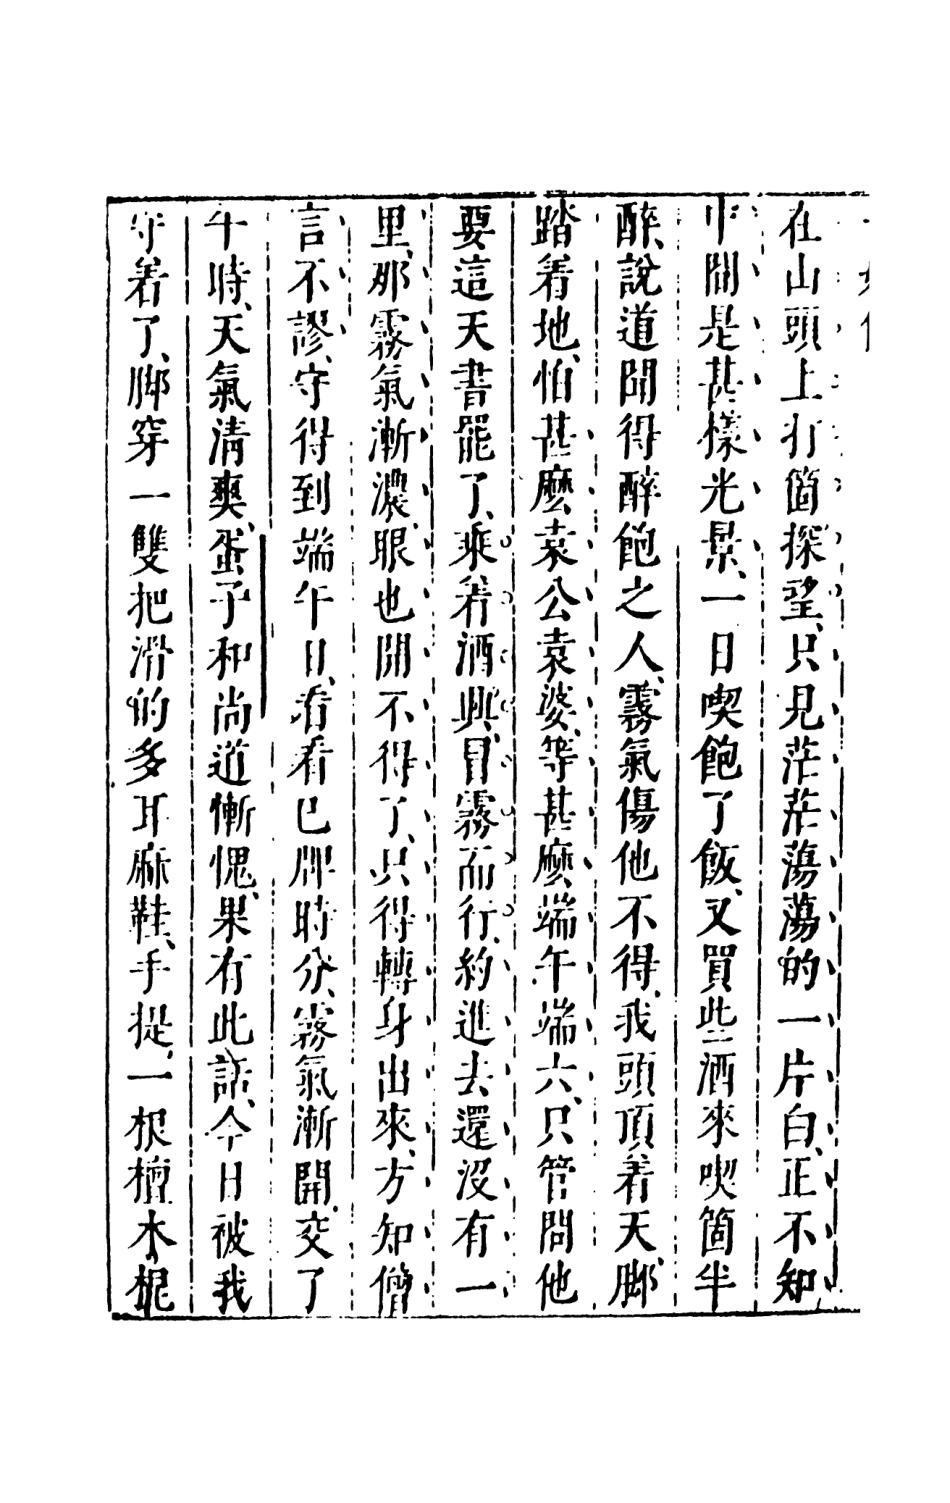 在山頭上打箇探望、只見茫茫蕩蕩的一片白、正不知
中間是甚樣光景、一日喫飽了飯、又買些酒來喫箇半
醉、說道聞得醉飽之人、霧氣傷他不得、我頭頂着天、脚
踏着地、怕甚麼袁公袁婆、等甚麼端午端六、只管問他
要這天書罷了、乘着酒興、冒霧而行、約進去還沒有一
里、那霧氣漸濃、眼也開不得了、只得轉身出來、方知僧
言不謬、守得到端午日、看看巳牌時分、霧氣漸開、交了
午時、天氣清爽、蛋子和尚道慚愧、果有此話、今日被我
守着了、脚穿一雙把滑的多耳麻鞋、手提一根檀木棍